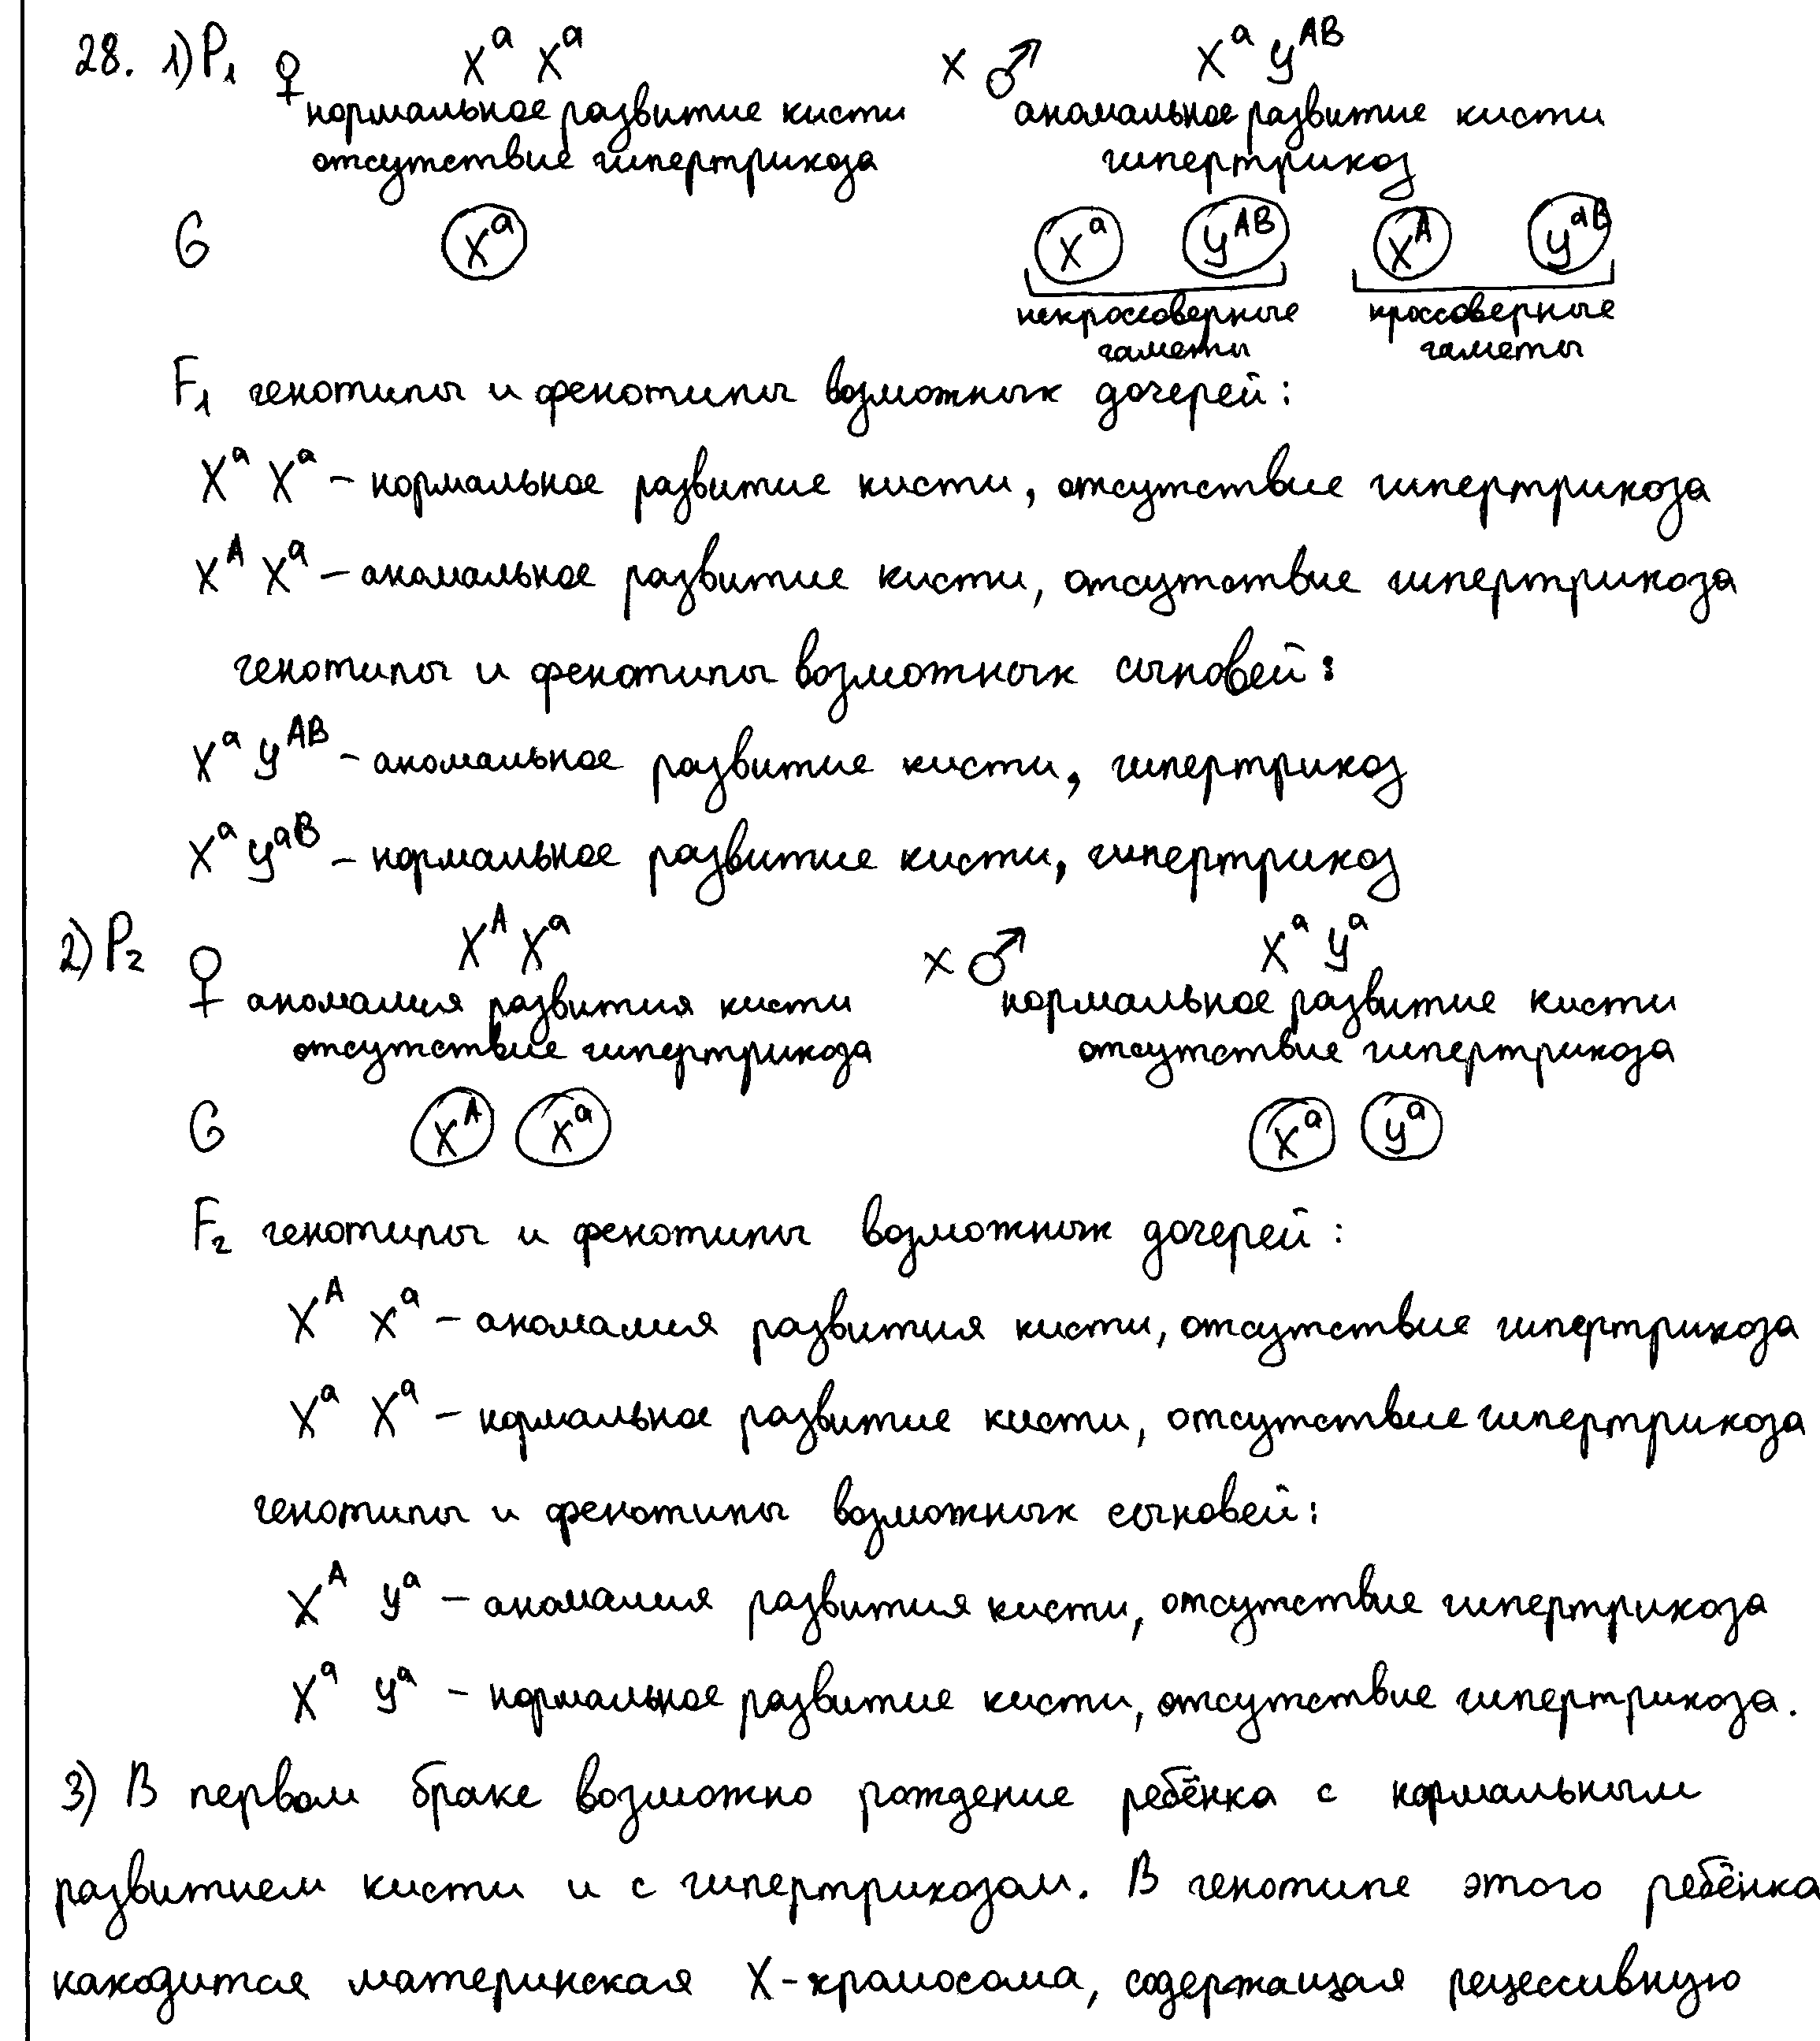 28. 1) P₁ ♀ Xᵃ Xᵃ × ♂ Xᵃ Yᴬᴮ
нормальное развитие кисти аномальное развитие кисти
отсутствие гипертрихоза гипертрихоз
G Xᵃ Xᵃ Yᴬᴮ Xᴬ Yᵃᴮ
некроссоверные кроссоверные
гаметы гаметы
F₁ генотипы и фенотипы возможных дочерей:
Xᵃ Xᵃ – нормальное развитие кисти, отсутствие гипертрихоза
Xᴬ Xᵃ – аномальное развитие кисти, отсутствие гипертрихоза
генотипы и фенотипы возможных сыновей:
Xᵃ Yᴬᴮ – аномальное развитие кисти, гипертрихоз
Xᵃ Yᵃᴮ – нормальное развитие кисти, гипертрихоз
2) P₂ ♀ Xᴬ Xᵃ × ♂ Xᵃ Yᵃ
аномалия развития кисти нормальное развитие кисти
отсутствие гипертрихоза отсутствие гипертрихоза
G Xᴬ Xᵃ Xᵃ Yᵃ
F₂ генотипы и фенотипы возможных дочерей:
Xᴬ Xᵃ – аномалия развития кисти, отсутствие гипертрихоза
Xᵃ Xᵃ – нормальное развитие кисти, отсутствие гипертрихоза
генотипы и фенотипы возможных сыновей:
Xᴬ Yᵃ – аномалия развития кисти, отсутствие гипертрихоза
Xᵃ Yᵃ – нормальное развитие кисти, отсутствие гипертрихоза.
3) В первом браке возможно рождение ребёнка с нормальным
развитием кисти и с гипертрихозом. В генотипе этого ребёнка
находится материнская X-хромосома, содержащая рецессивную